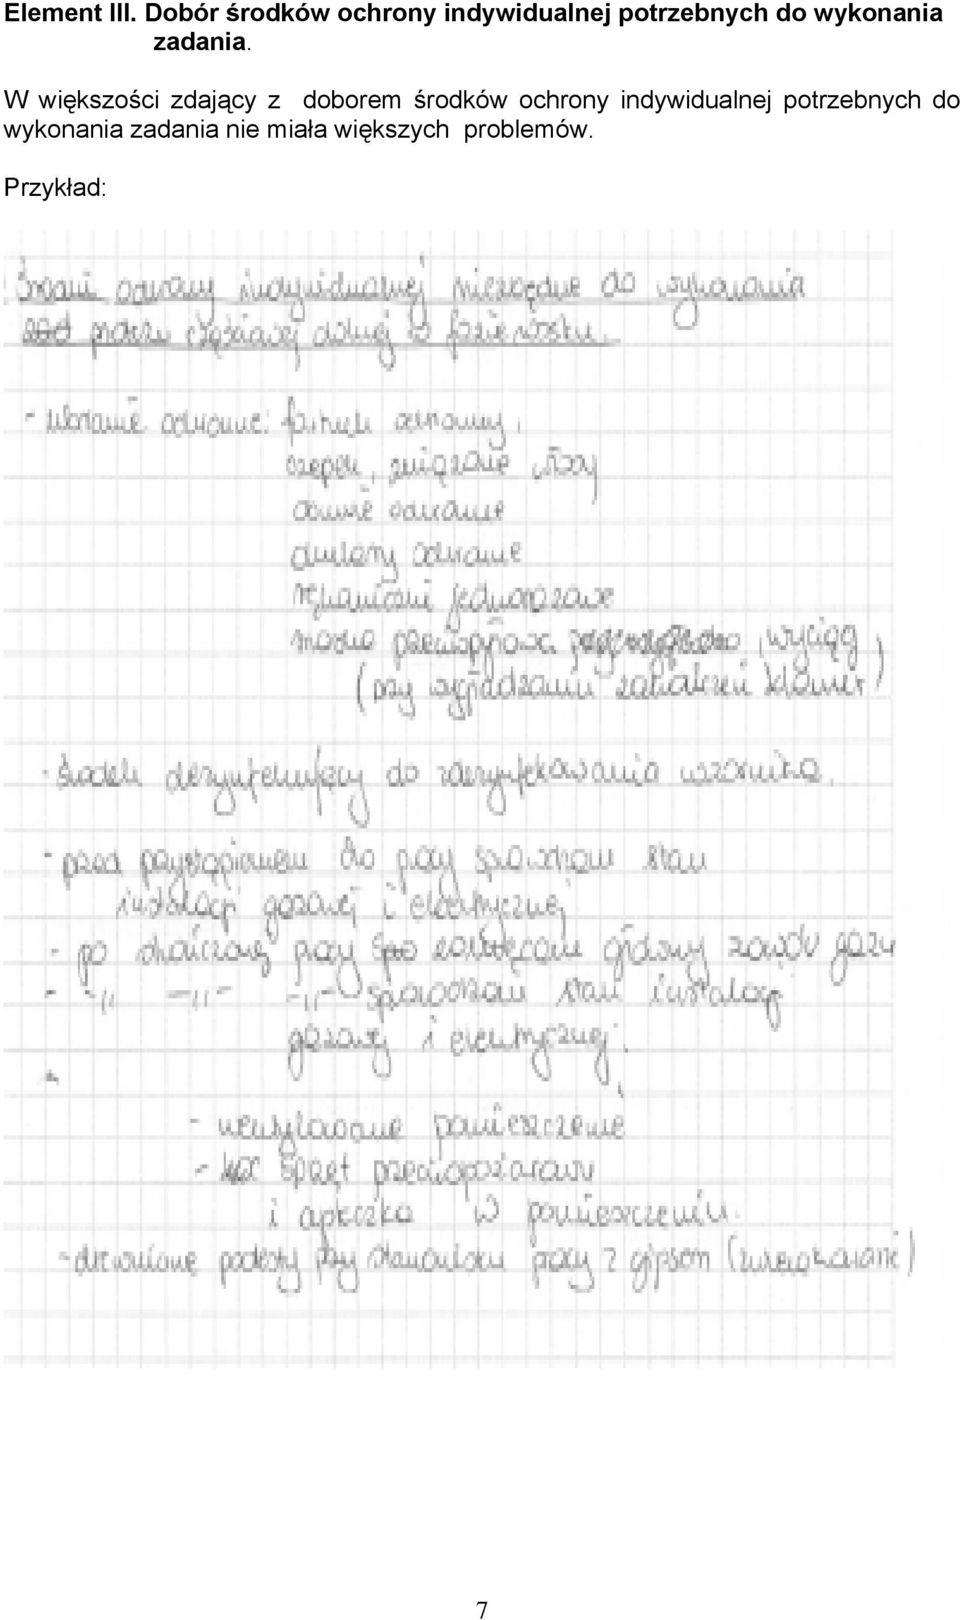 Element III. Dobór środków ochrony indywidualnej potrzebnych do wykonania
zadania.
W większości zdający z doborem środków ochrony indywidualnej potrzebnych do
wykonania zadania nie miała większych problemów.
Przykład:
Środki ochrony indywidualnej niezbędne do wykonania
protezy częściowej dolnej
- Ubranie ochronne: fartuch ochronny,
czepek, związane włosy
obuwie ochronne
okulary ochronne
rękawiczki jednorazowe
maska przeciwpyłowa, wyciąg
(przy wygładzaniu zakończeń klamer)
- środek dezynfekujący do zdezynfekowania wzornika.
- przed przystąpieniem do pracy sprawdzam stan
instalacji gazowej i elektrycznej
- po skończonej pracy zakręcam główny zawór gazu
- -„- -„- -„- sprawdzam stan instalacji
gazowej i elektrycznej.
- wentylowane pomieszczenie
- sprzęt przeciwpożarowy
i apteczka w pomieszczeniu.
- drewniane podesty przy stanowisku pracy z gipsem
7